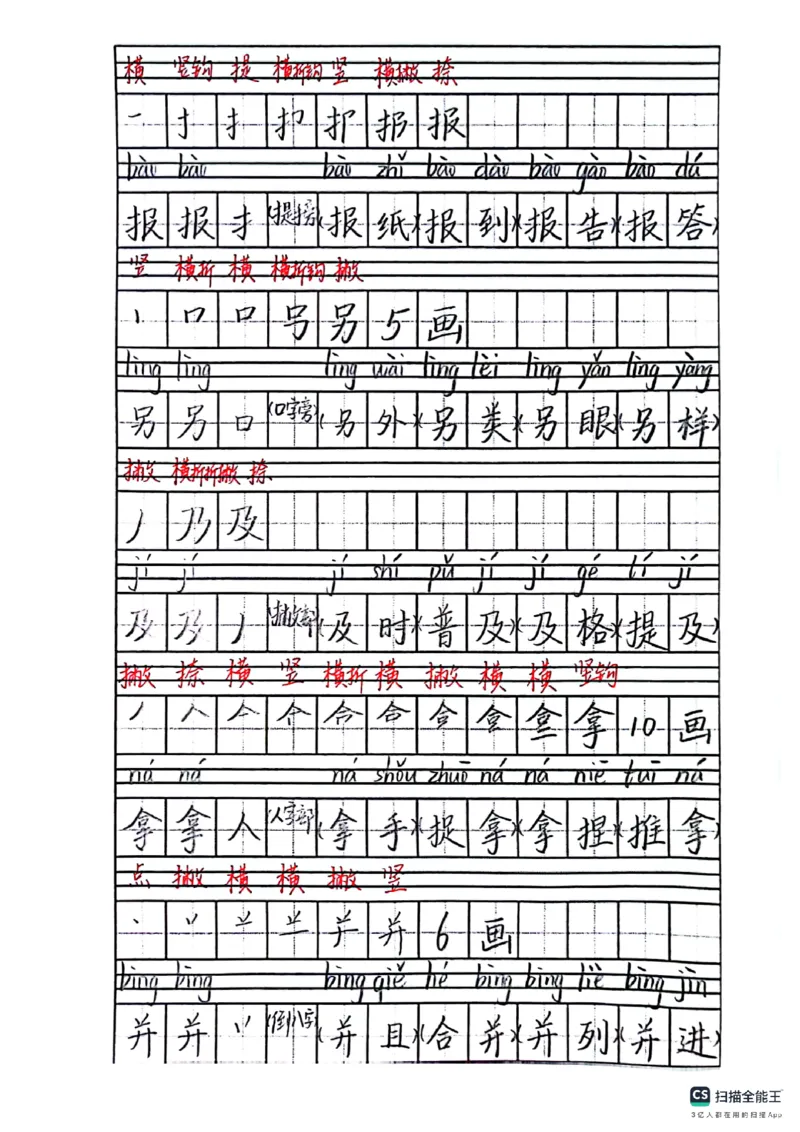 横 竖钩 提 横折钩 竖 横撇 捺
一 扌 扌 扌 报
bào bào bào zhǐ bào dào bào gào bào dá
报 报 扌 (提手旁) (报纸)(报到)(报告)(报答)
竖 横折 横 横折钩 撇
丨 口 口 另 另 5 画
lìng lìng lìng wài lìng lèi lìng yǎn lìng yàng
另 另 口 (口字旁) (另外)(另类)(另眼)(另样)
撇 横折折撇 捺
丿 乃 及
jí jí jí shí pǔ jí jí gé tí jí
及 及 丿 (撇部) (及时)(普及)(及格)(提及)
撇 捺 横 竖 横折 横 撇 横 横 竖钩
丿 人 亼 合 合 拿 10 画
ná ná ná shǒu zhuō ná ná niē tuī ná
拿 拿 人 (人字部) (拿手)(捉拿)(拿捏)(推拿)
点 撇 横 横 撇 竖
丶 丷 并 并 6 画
bìng bìng bìng qiě hé bìng bìng liè bìng jìn
并 并 丷 (倒八字) (并且)(合并)(并列)(并进)
CS 扫描全能王
3亿人都在用的扫描App